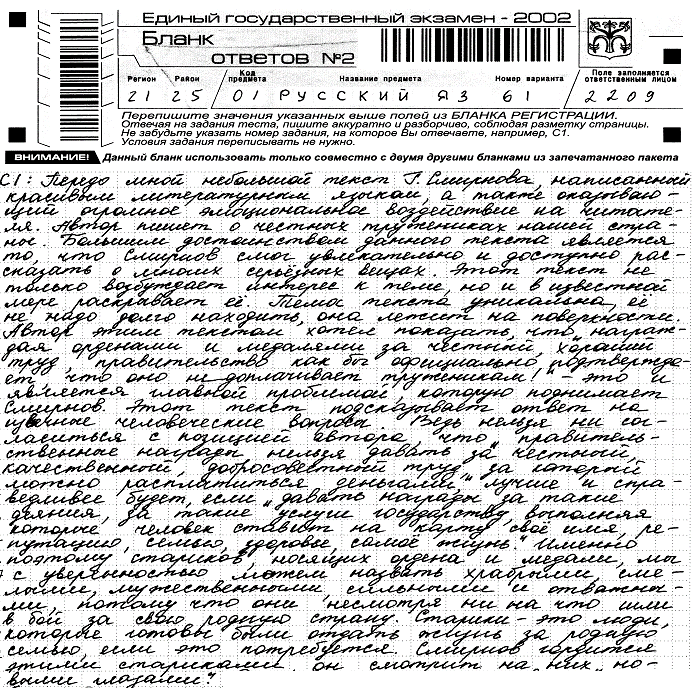 Единый государственный экзамен - 2002
Бланк
ответов №2
Регион Район Код предмета Название предмета Номер варианта Поле заполняется ответственным лицом
21 25 01 РУССКИЙ ЯЗ 61 2209
Перепишите значения указанных выше полей из БЛАНКА РЕГИСТРАЦИИ.
Отвечая на задания теста, пишите аккуратно и разборчиво, соблюдая разметку страницы.
Не забудьте указать номер задания, на которое Вы отвечаете, например, С1.
Условия задания переписывать не нужно.
ВНИМАНИЕ! Данный бланк использовать только совместно с двумя другими бланками из запечатанного пакета
С1: Передо мной небольшой текст Г. Смирнова, написанный
красивым литературным языком, а также оказываю-
щий огромное эмоциональное воздействие на читате-
ля. Автор пишет о честных тружениках нашей стра-
ны. Большим достоинством данного текста является
то, что Смирнов смог увлекательно и доступно рас-
сказать о многих серьёзных вещах. Этот текст не
только возбуждает интерес к теме, но и в известной
мере раскрывает её. Тема текста уникальна, её
не надо долго находить, она лежит на поверхности.
Автор этим текстом хотел показать, что награж-
дая орденами и медалями за честный хороший
труд, правительство как бы официально „подтвержда-
ет, что оно не доплачивает труженикам," - это и
является главной проблемой, которую поднимает
Смирнов. Этот текст подсказывает ответ на
вечные человеческие вопросы. Ведь нельзя ни сог-
ласиться с позицией автора, что правитель-
ственные награды нельзя давать за „честный,
качественный, добросовестный труд, за который
можно расплатиться деньгами," лучше и спра-
ведливее будет, если „давать награды за такие
деяния, за такие услуги государству выполняя
которые, человек ставит на карту своё имя, ре-
путацию, семью, здоровье, самоё жизнь." Именно
поэтому стариков, носящих ордена и медали, мы
с уверенностью можем назвать храбрыми сме-
лыми, мужественными, сильными и отважны-
ми, потому что они несмотря ни на что шли
в бой за свою родную страну. Старики - это люди,
которые готовы были отдать жизнь за родную
семью, если это потребуется. Смирнов гордится
этими стариками, он смотрит на „них но-
выми глазами".